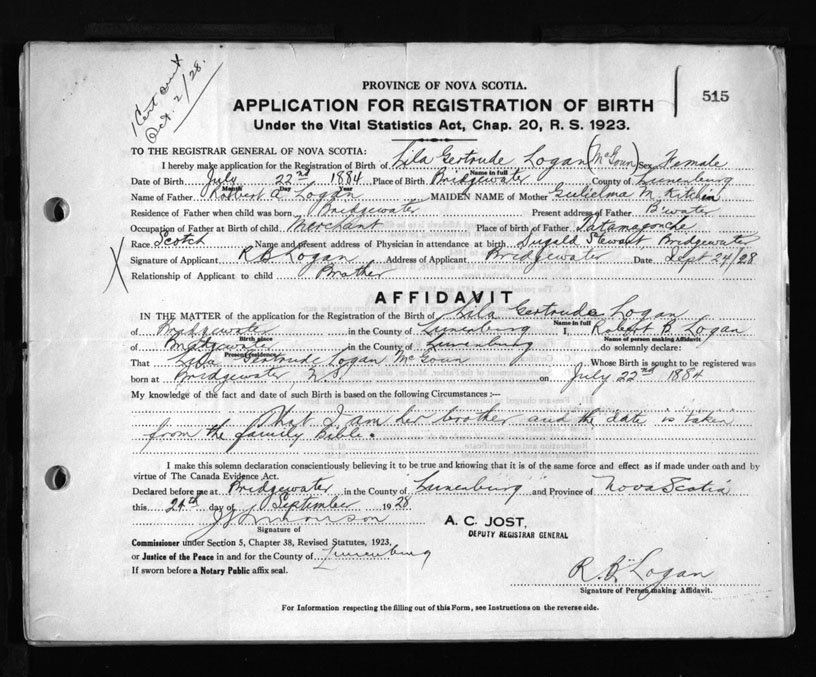 1 Cert sent
Oct. 2/28.
PROVINCE OF NOVA SCOTIA.
515
APPLICATION FOR REGISTRATION OF BIRTH
Under the Vital Statistics Act, Chap. 20, R. S. 1923.
TO THE REGISTRAR GENERAL OF NOVA SCOTIA:
I hereby make application for the Registration of Birth of Lila Gertrude Logan (McGoun) Sex Female
Name in full
Date of Birth July 22nd 1884 Place of Birth Bridgewater County of Lunenburg
Month Day Year
Name of Father Robert A Logan MAIDEN NAME of Mother Gulielma M. Kitchin
Residence of Father when child was born Bridgewater Present address of Father B'water
Occupation of Father at Birth of child Merchant Place of birth of Father Tatamagouche
Race Scotch Name and present address of Physician in attendance at birth Dugald Stewart Bridgewater
Signature of Applicant R B Logan Address of Applicant Bridgewater Date Sept 24/28
Relationship of Applicant to child Brother
AFFIDAVIT
IN THE MATTER of the application for the Registration of the Birth of Lila Gertrude Logan
Name in full
of Bridgewater in the County of Lunenburg I, Robert B. Logan
Birth place Name of person making Affidavit
of Bridgewater in the County of Lunenburg do solemnly declare:
Present residence
That Lila Gertrude Logan McGoun Whose Birth is sought to be registered was
born at Bridgewater N.S. on July 22nd 1884
My knowledge of the fact and date of such Birth is based on the following Circumstances:—
That I am her brother and the date is taken
from the family Bible.
I make this solemn declaration conscientiously believing it to be true and knowing that it is of the same force and effect as if made under oath and by
virtue of The Canada Evidence Act.
Declared before me at Bridgewater in the County of Lunenburg and Province of Nova Scotia
this 24th day of September 1928
A. C. JOST,
Signature of
DEPUTY REGISTRAR GENERAL
Commissioner under Section 5, Chapter 38, Revised Statutes, 1923,
or Justice of the Peace in and for the County of Lunenburg
If sworn before a Notary Public affix seal.
R. B. Logan
Signature of Person making Affidavit.
For Information respecting the filling out of this Form, see Instructions on the reverse side.